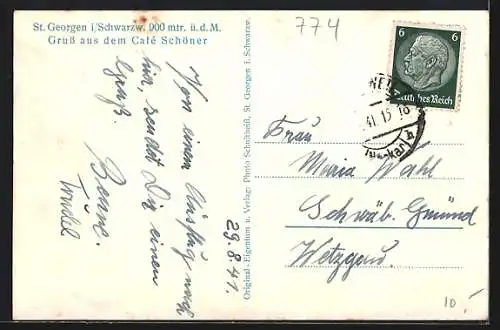 St. Georgen i/Schwarzw. 900 mtr. ü.d.M.
Gruß aus dem Café Schöner
774
Von einem Ausflug nach
hier, sendet Dir einen
Gruß.
Trudel
29.8.41.
Original-Eigentum u. Verlag: Photo Schultheiß, St. Georgen i. Schwarzw.
6 6
Deutsches Reich
41.15
Frau
Maria Wahl
Schwäb. Gmünd
Wetzgau.
10.-